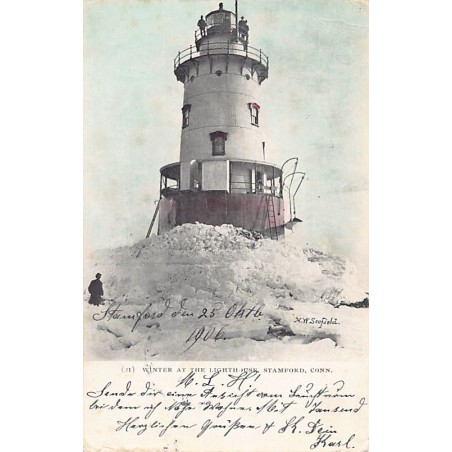 Stamford den 25 Oktb.
1906.
H.W. Scofield
(11) WINTER AT THE LIGHTHOUSE, STAMFORD, CONN.
M. L. H!
Sende dir eine Ansicht vom
bei dem Mit Tausend
Herzlichen Grüßen & Dein
Karl.